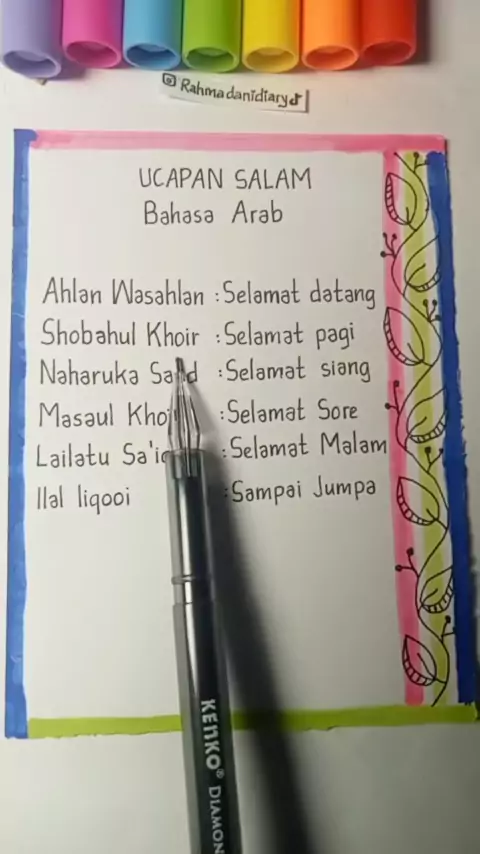 Rahmadanidiary
UCAPAN SALAM
Bahasa Arab
Ahlan Wasahlan : Selamat datang
Shobahul Khoir : Selamat pagi
Naharuka : Selamat siang
Masaul : Selamat Sore
Lailatu : Selamat Malam
Ilal liqooi : Sampai Jumpa
KENKO® DIAMON